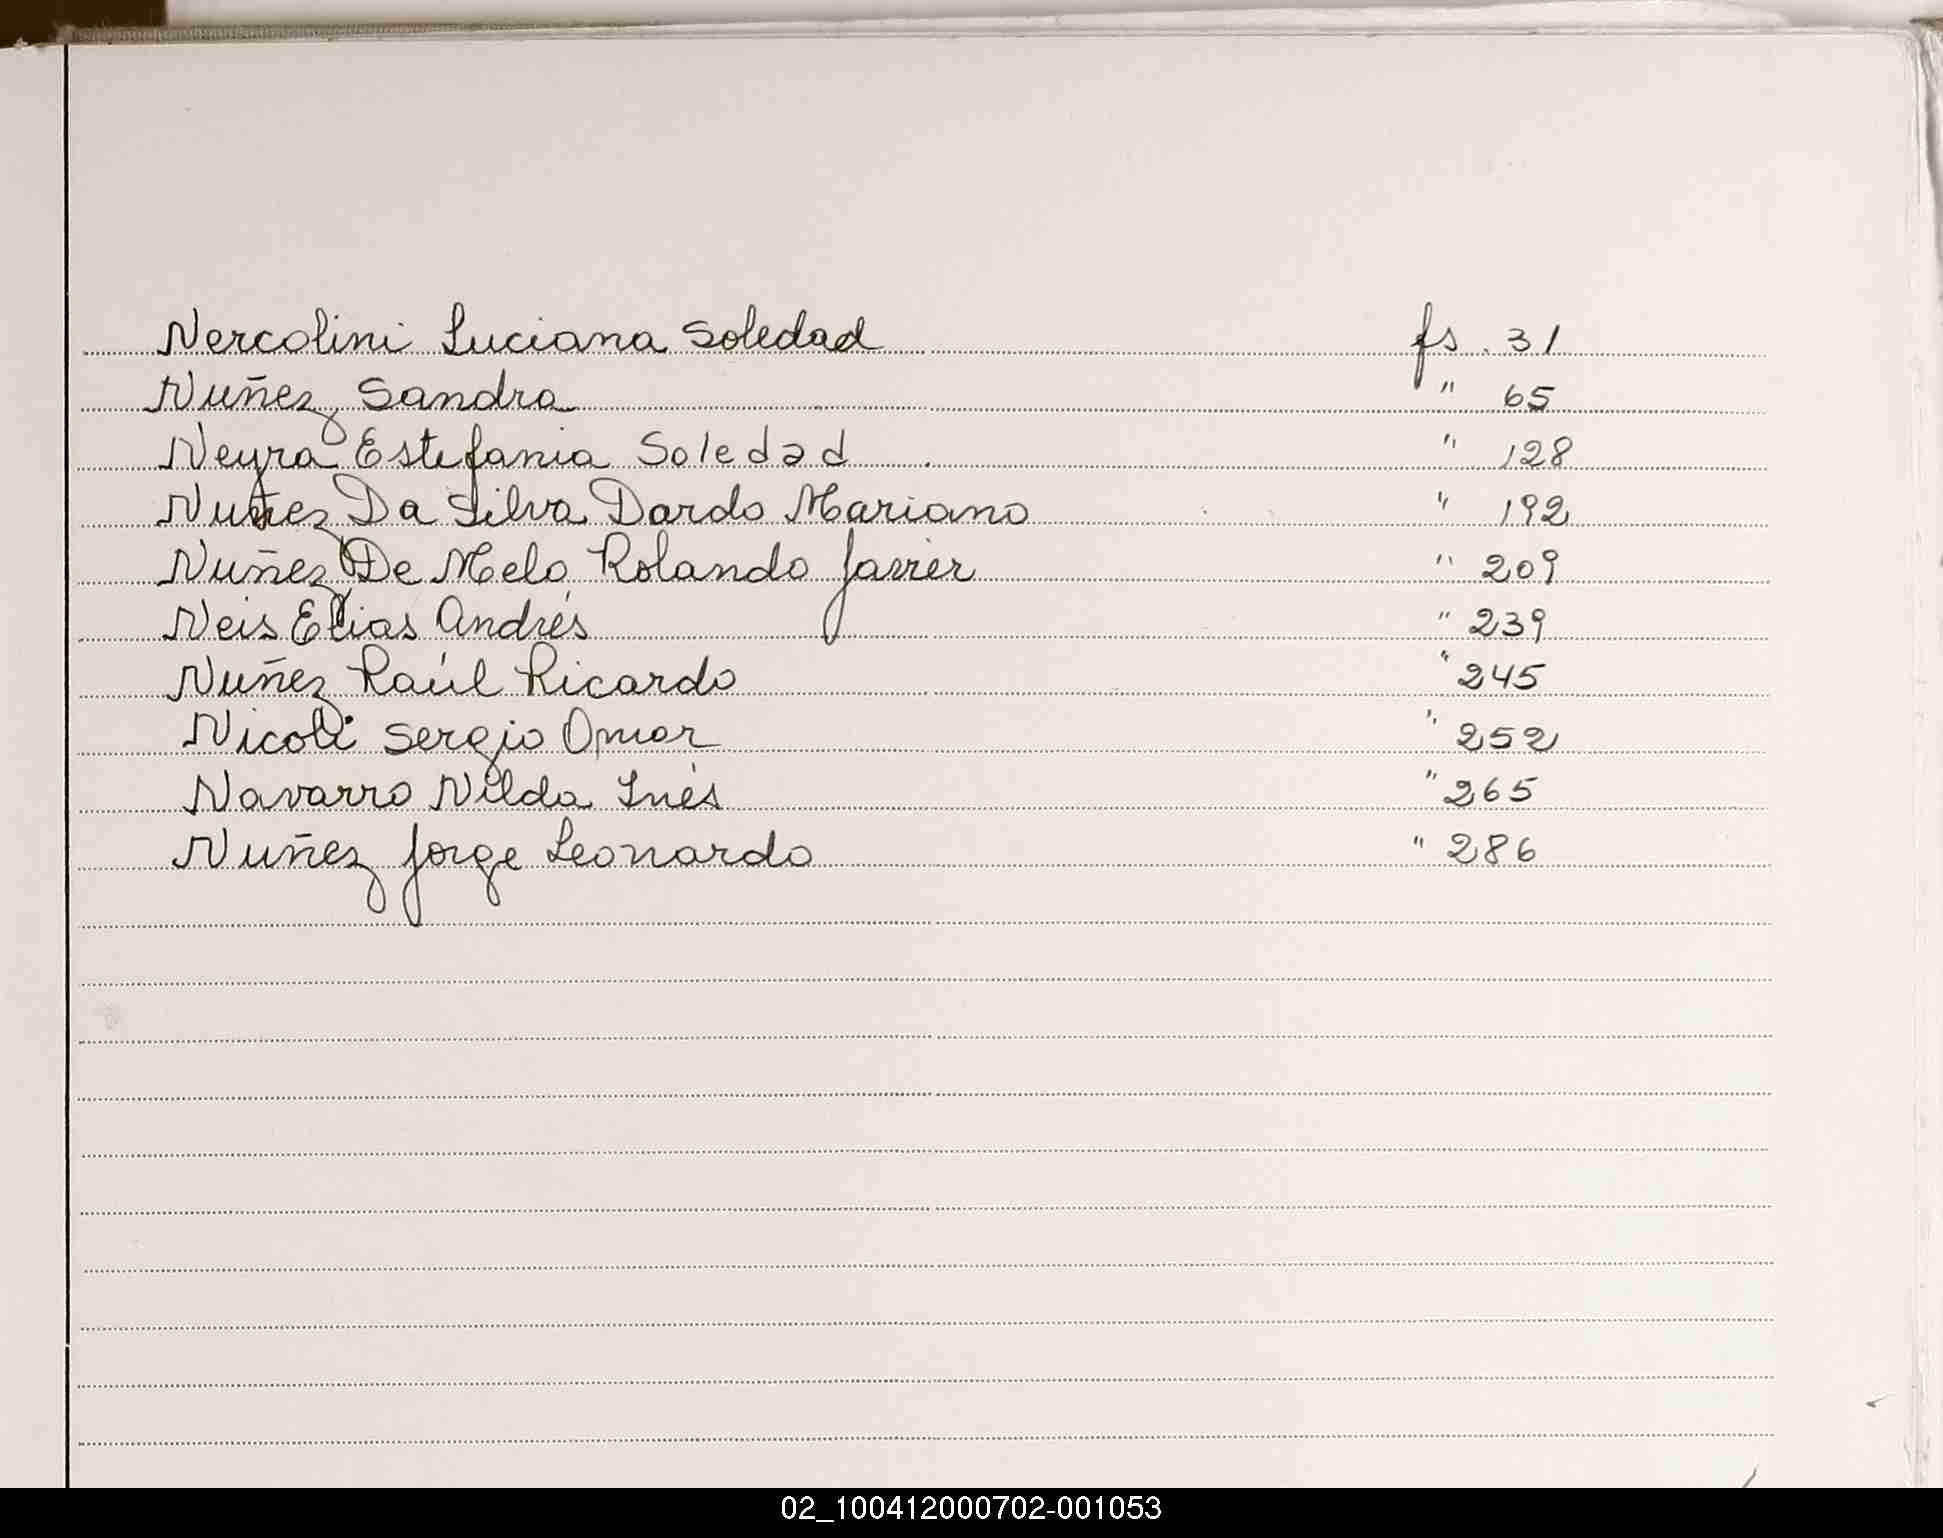 Nercolini Luciana Soledad fs. 31
Nuñez Sandra " 65
Neyra Estefania Soledad " 128
Nuñez Da Silva Dardo Mariano " 192
Nuñez De Melo Rolando Javier " 209
Neis Elias Andrés " 239
Nuñez Raúl Ricardo " 245
Nicoli Sergio Omar " 252
Navarro Nilda Inés " 265
Nuñez Jorge Leonardo " 286
02_100412000702-001053